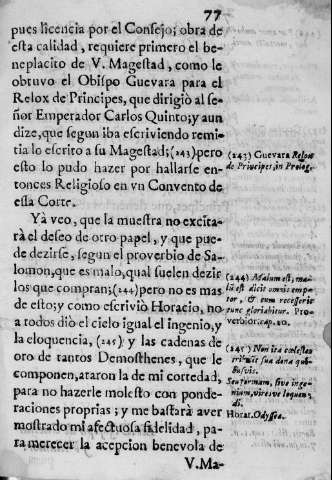 77
pues licencia por el Consejo; obra de
esta calidad, requiere primero el be-
neplacito de V. Magestad, como le
obtuvo el Obispo Guevara para el
Relox de Principes, que dirigiò al se-
ñor Emperador Carlos Quinto; y aun
dize, que segun iba escriviendo remi-
tia lo escrito a su Magestad; (243) pero
esto lo pudo hazer por hallarse en-
tonces Religioso en vn Convento de
essa Corte.
Yà veo, que la muestra no excita-
rà el deseo de otro papel, y que pue-
de dezirse, segun el proverbio de Sa-
lomon, que es malo, qual suelen dezir
los que compran; (244) pero no es mas
de esto; y como escriviò Horacio, no
a todos diò el cielo igual el ingenio, y
la eloquencia, (245) y las cadenas de
oro de tantos Demosthenes, que le
componen, ataron la de mi cortedad,
para no hazerle molesto con ponde-
raciones proprias; y me bastarà aver
mostrado mi afectuosa fidelidad, pa-
ra merecer la acepcion benevola de
V. Ma-
(243) Guevara Relox
de Principes, in Prolog.
(244) Malum est, ma-
lũ est dicit omnis emp-
tor, & cum recesserit
tunc gloriabitur. Pro-
verbior. cap. 20.
(245) Non ita cælestes
sua dona qui-
busvis.
Seu formam, sive inge-
nium, vires ve loquen-
di.
Horat. Odyssea.